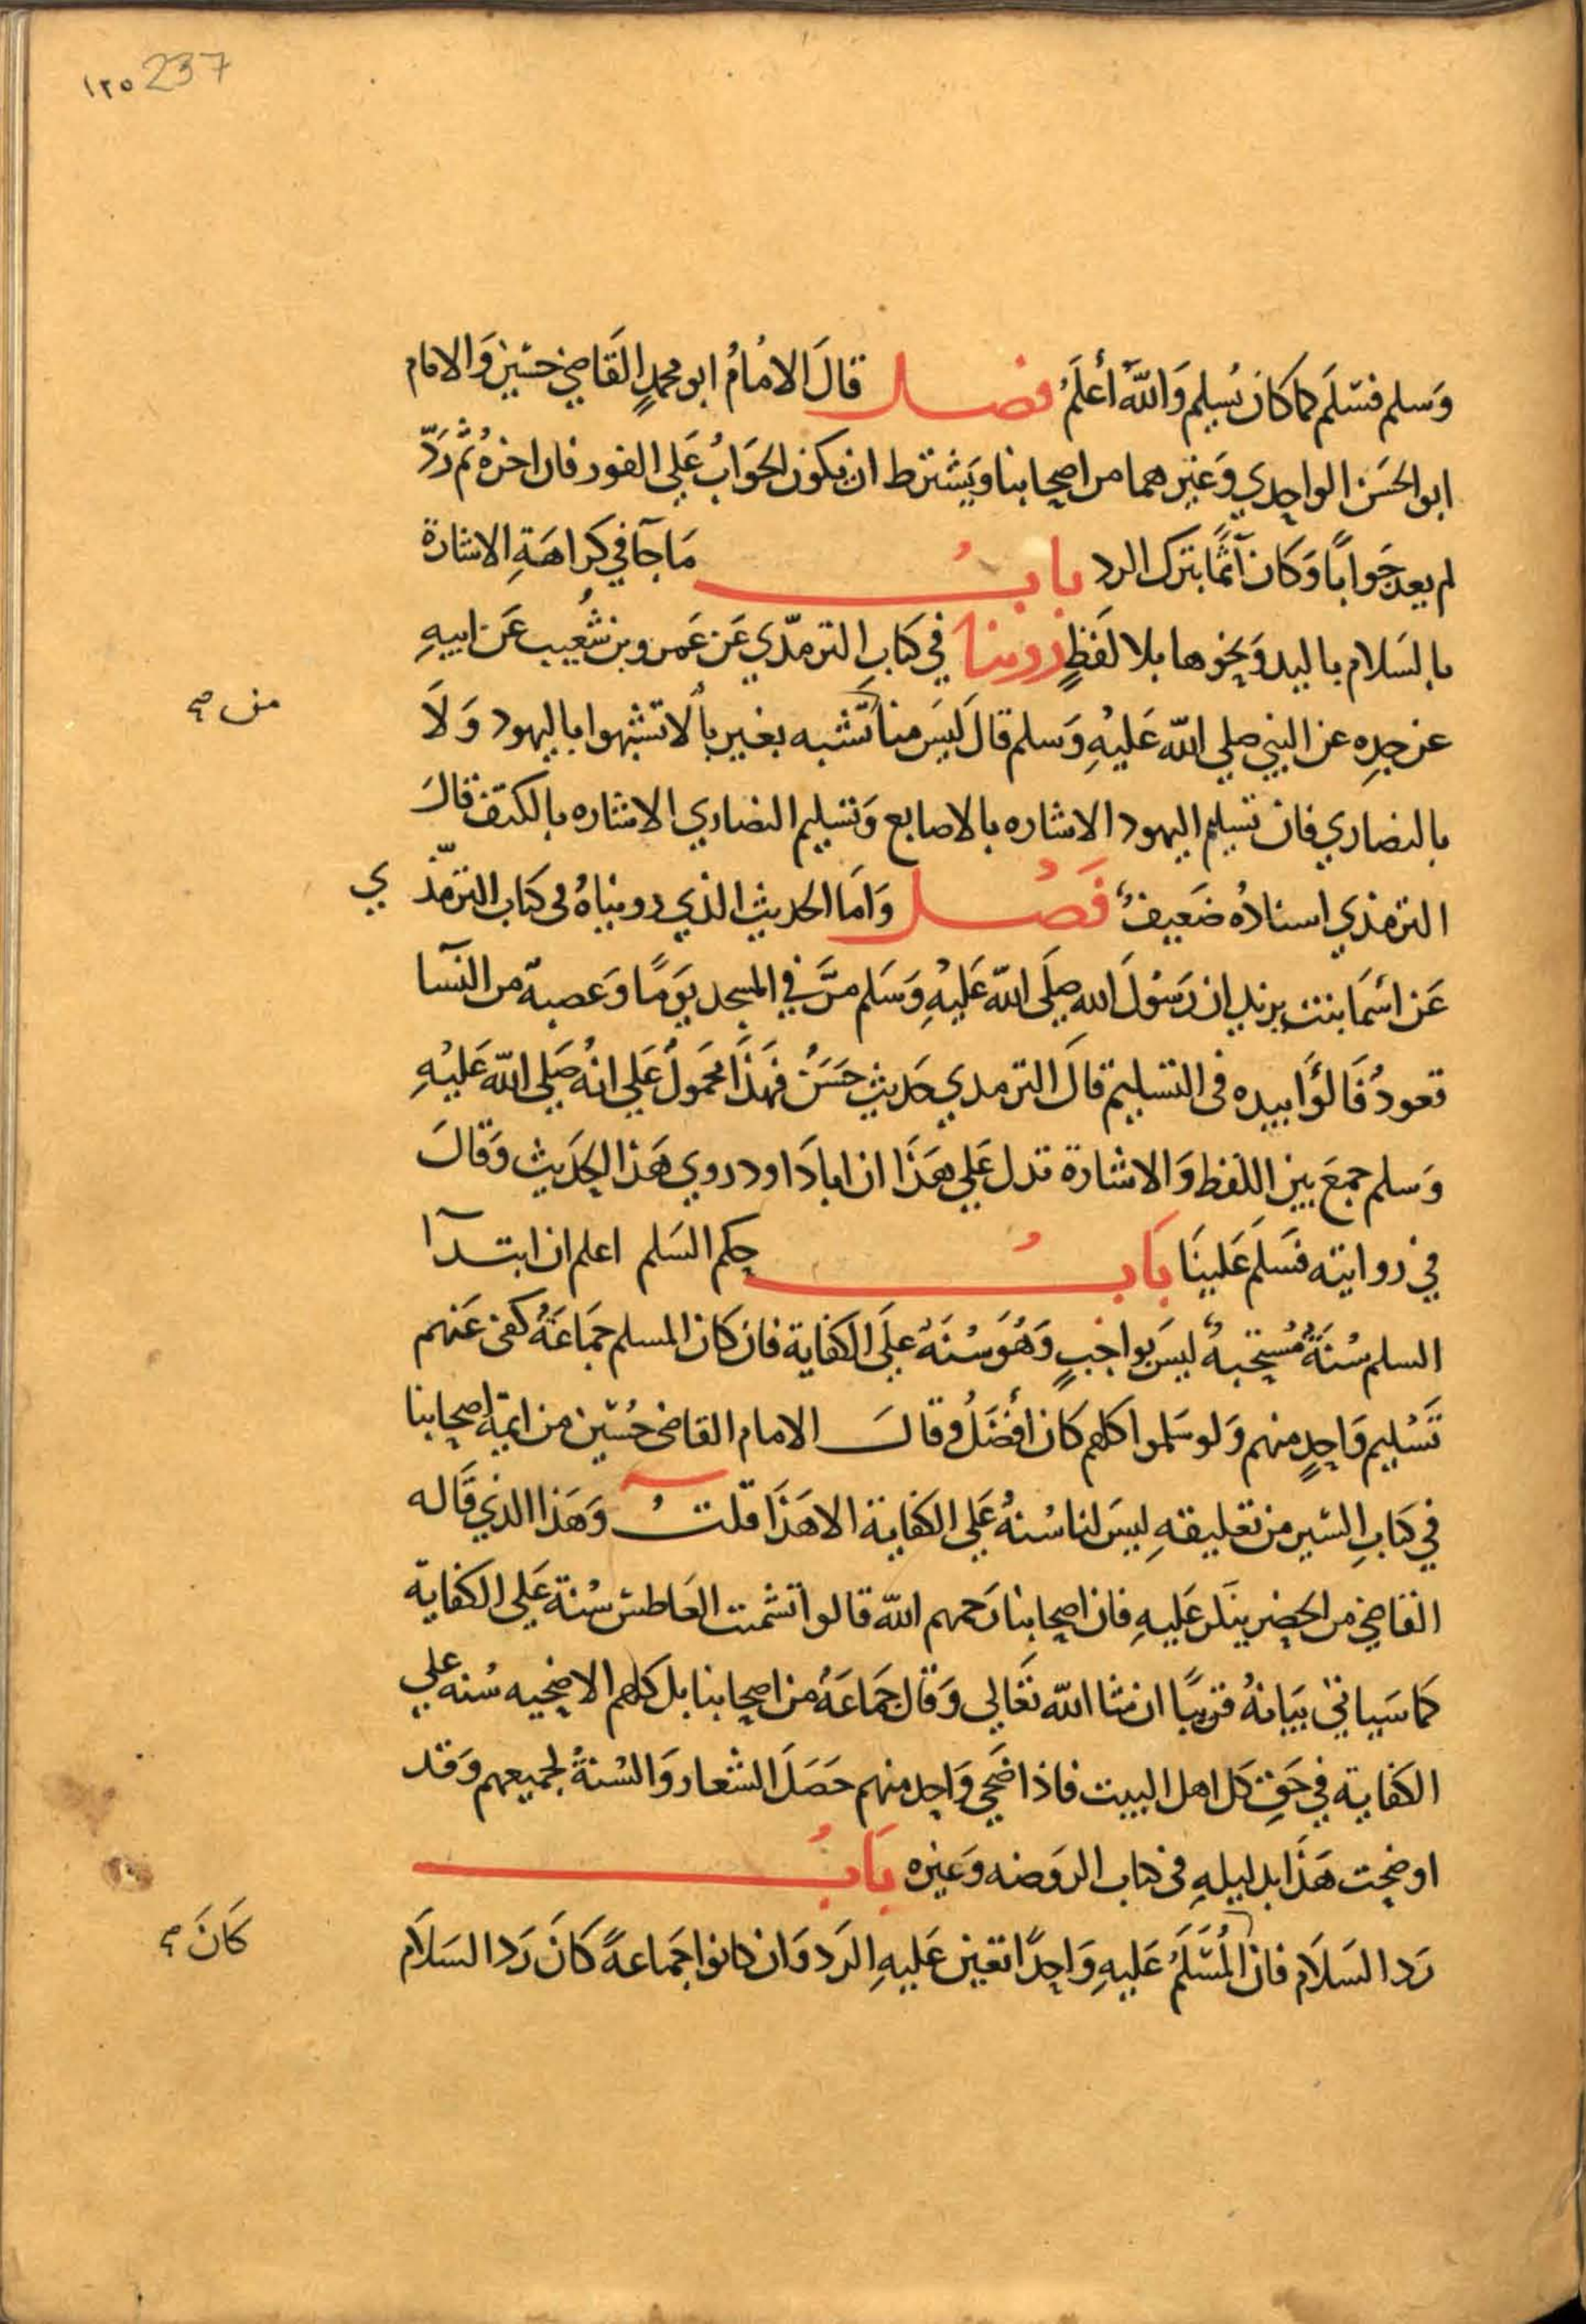 ١٢٥ 237
وَسلم فسَلَم كما كانَ يُسلِم وَاللهُ أعْلَمُ فصل قالَ الامَامُ ابو محمدٍ القَاضِي حسَين وَالامام
ابو الحسَن الواحِدي وَغيرهما من اصحابنا ويَشترط ان يكون الجوَابُ عَلى الفور فان اخرهُ ثُم رَدّ
لم يعد جَوابًا وَكان آثمًا بترك الرد بابُ مَا جآ في كراهَةِ الاشارة
بالسَلام باليد وَنحوها بلا لَفظٍ روينا في كتابِ الترمذي عَن عَمرو بن شُعيب عَن ابيهِ
عن جدِه عن النبي صلي الله عَليْهِ وَسلم قالَ ليَس منا تَشبه بغيرنا لا تشبهوا باليهود وَلَا
من صح
بالنصاري فان تسليم اليهود الاشاره بالاصابع وَتسليم النصاري الاشاره بالكف قالَ
الترمذي اسنادُه ضَعيفٌ فَصْل وَامَا الحديث الذي رويناهُ في كتاب الترمذ ي
عَن اسْمَا بنت يزيد ان رَسُولَ الله صلَى الله عَليْهِ وَسَلم مرَّ في المسجد يَومًا وَعصبة من النسآ
قعودٌ فَالوَا بيده في التسليم قالَ الترمدي حَديث حسَنٌ فهذَا محَمولٌ عَلي انهُ صَلي الله عَليْهِ
وَسلم جمعَ بين اللفظ وَالاشارة تدل عَلي هَذَا ان ابا دَاود روي هَذا الحدَيث وَقالَ
في روايته فسَلَم عَلينَا بَابُ حكم السَلم اعلم ان ابتدآ
السلم سُنَةٌ مُستحبةٌ ليسَ بواجبٍ وَهُوَ سُنَةٌ علَى الكفاية فان كان المسلم جمَاعَةً كفي عَنهم
تَسْليم وَاحدٍ منهم وَلو سَلموا كلهم كان أفضَلُ وقالَ الامام القاضي حُسَين من ايمة اصحابنا
في كتابِ السَير من تعليقهِ ليسَ لنا سُنةٌ عَلي الكفاية الا هَذَا قلتُ وَهَذا الذي قَاله
القاضِي من الحصر ينكر عَليهِ فان اصحابنا رَحمهم الله قالوا تشميت العَاطس سُنة عَلي الكفاية
كما سَياتي بيَانهُ قريبًا ان شا الله تعَالي وَقال جمَاعَةٌ من اصحابنا بل كلهم الاضحيه سُنه علي
الكفاية في حَقِ كل اهل البيت فاذا ضَحي وَاحد منهم حَصَلَ الشعار وَالسُنةُ لجميعهم وَقد
اوضحت هَذَا بدليلهِ في كتاب الروَضه وَغيره بَابُ
رَد السَلَام فان المُسَلَمُ عَليهِ وَاحِدًا تعَين عَليهِ الرَد وَان كانوا جَماعةً كانَ رَد السَلَام
كَانَ صح